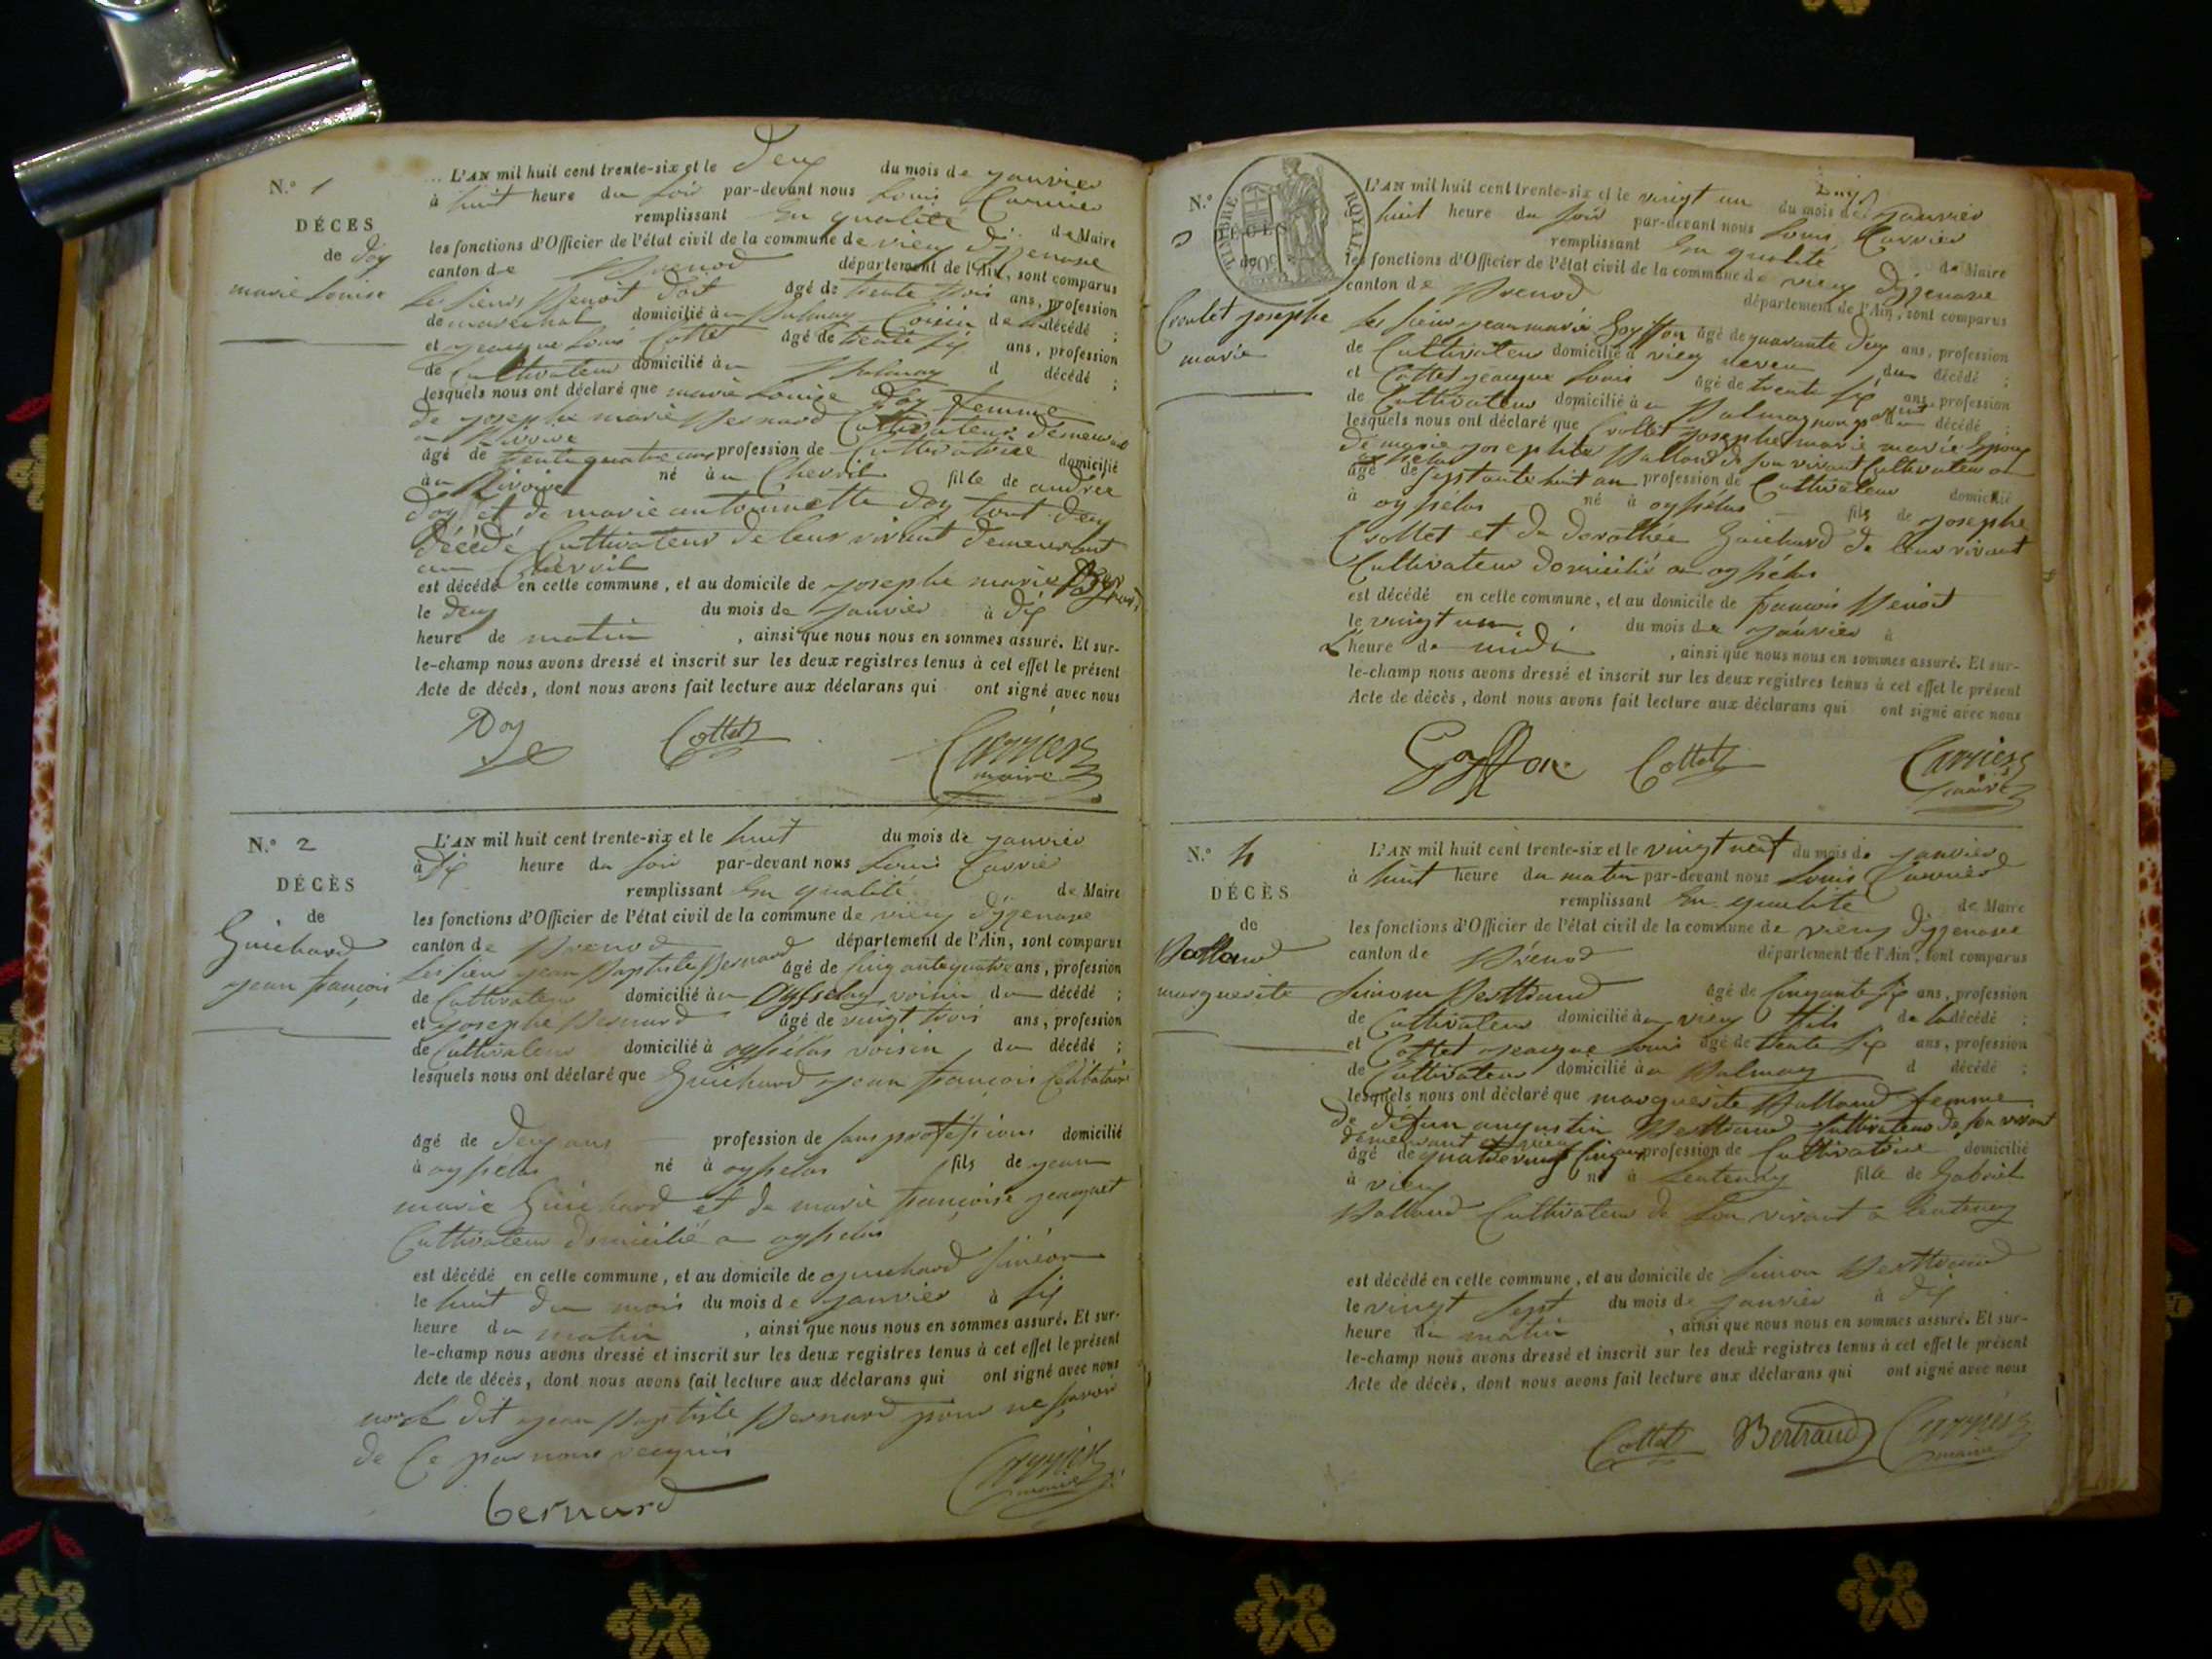 N.º 1
DÉCES
de Doy
marie Louise
L'AN mil huit cent trente-six et le Deux du mois de janvier
à huit heure du soir par-devant nous Louis Carrier
remplissant En qualité de Maire
les fonctions d'Officier de l'état civil de la commune de vieu D'yzenave
canton de Brenod département de l'Ain, sont comparus
les sieurs Benoit Doit âgé de trente trois ans, profession
de marechal domicilié à Balmay Cousin de la décédé ;
et jeacque Louis Cottet âgé de trente six ans, profession
de Cultivateur domicilié à Balmay d décédé ;
lesquels nous ont déclaré que marie Louise Doy femme
de josephe marie Bernard Cultivateur demeurant
âgé de trente quatre ans profession de Cultivatrice domicilié
né à Chevril fille de andree
Doy et de marie antoinette Doy tout deux
Décédé Cultivateur de leur vivant Demeurant
au Chevril
est décédé en cette commune, et au domicile de josephe marie Bernard
le deux du mois de janvier à Dix
heure de matin , ainsi que nous nous en sommes assuré. Et sur-
le-champ nous avons dressé et inscrit sur les deux registres tenus à cet effet le présent
Acte de décès, dont nous avons fait lecture aux déclarans qui ont signé avec nous
Doy Cottet Carrier
maire
N.º 2
DÉCÈS
de
Guichard
jean françois
L'AN mil huit cent trente-six et le huit du mois de janvier
à dix heure du soir par-devant nous Louis Carrier
remplissant En qualité de Maire
les fonctions d'Officier de l'état civil de la commune de vieu d'yzenave
canton de Brenod département de l'Ain, sont comparus
les sieurs jean Baptiste Bernard âgé de cinq ante quatre ans, profession
de Cultivateur domicilié à oysselas voisin du décédé ;
et josephe Bernard âgé de vingt trois ans, profession
de Cultivateur domicilié à oysselas voisin du décédé ;
lesquels nous ont déclaré que Guichard jean françois Celibataire
âgé de deux ans profession de sans professions domicilié
à oysselas né à oysselas fils de jean
marie Guichard et de marie françoise jeacquet
Cultivateur Domicilié a oysselas
est décédé en cette commune, et au domicile de guichard simeon
le huit du mois du mois de janvier à six
heure du matin , ainsi que nous nous en sommes assuré. Et sur-
le-champ nous avons dressé et inscrit sur les deux registres tenus à cet effet le présent
Acte de décès, dont nous avons fait lecture aux déclarans qui ont signé avec nous
non le dit jean Baptiste Bernard pour ne savoir
de Ce par nous requis
bernard Carrier
maire
N.º 3
TIMBRE ROYAL
DÉCÈS
de
Croulet josephe
marie
L'AN mil huit cent trente-six et le vingt un du mois de janvier
huit heure du soir par-devant nous Louis Carrier
remplissant En qualité de Maire
les fonctions d'Officier de l'état civil de la commune de vieu D'yzenave
canton de Brenod département de l'Ain, sont comparus
les sieurs jean marie Goyffon âgé de quarante deux ans, profession
de Cultivateur domicilié à vieu neveu du décédé ;
et Cottet jeacque Louis âgé de trente six ans, profession
de Cultivateur domicilié à Balmay non parent du décédé ;
lesquels nous ont déclaré que Crollet josephe marie marié Epoux
de marie josephte Balland de son vivant Cultivateur a
oysselas
âgé de seyssante huit an profession de Cultivateur domicilié
à oysselas né à oysselas fils de josephe
Crollet et de dorothée Guichard de leur vivant
Cultivateur domicilié a oysselas
est décédé en cette commune, et au domicile de françois Benoit
le vingt un du mois de janvier à
L'heure de midi , ainsi que nous nous en sommes assuré. Et sur-
le-champ nous avons dressé et inscrit sur les deux registres tenus à cet effet le présent
Acte de décès, dont nous avons fait lecture aux déclarans qui ont signé avec nous
Goyffon Cottet Carrier
maire
N.º 4
DÉCÈS
de
Balland
marguerite
L'AN mil huit cent trente-six et le vingt neuf du mois de janvier
à huit heure du matin par-devant nous Louis Carrier
remplissant En qualité de Maire
les fonctions d'Officier de l'état civil de la commune de vieu D'yzenave
canton de Brénod département de l'Ain, sont comparus
Simon Berttrand âgé de cinquante six ans, profession
de Cultivateur domicilié à vieu fils de la décédé ;
et Cottet jeacque Louis âgé de trente six ans, profession
de Cultivateur domicilié à Balmay d décédé ;
lesquels nous ont déclaré que marguerite Balland femme
de défun augustin Berttrand Cultivateur de son vivant
demeurant a vieu
âgé de quatre vingt cinq ans profession de Cultivatrice domicilié
à vieu né à Lentenay fille de Gabriel
Balland Cultivateur de son vivant a Lentenay
est décédé en cette commune, et au domicile de Simon Berttrand
le vingt sept du mois de janvier à dix
heure du matin , ainsi que nous nous en sommes assuré. Et sur-
le-champ nous avons dressé et inscrit sur les deux registres tenus à cet effet le présent
Acte de décès, dont nous avons fait lecture aux déclarans qui ont signé avec nous
Cottet Bertrand Carrier
maire